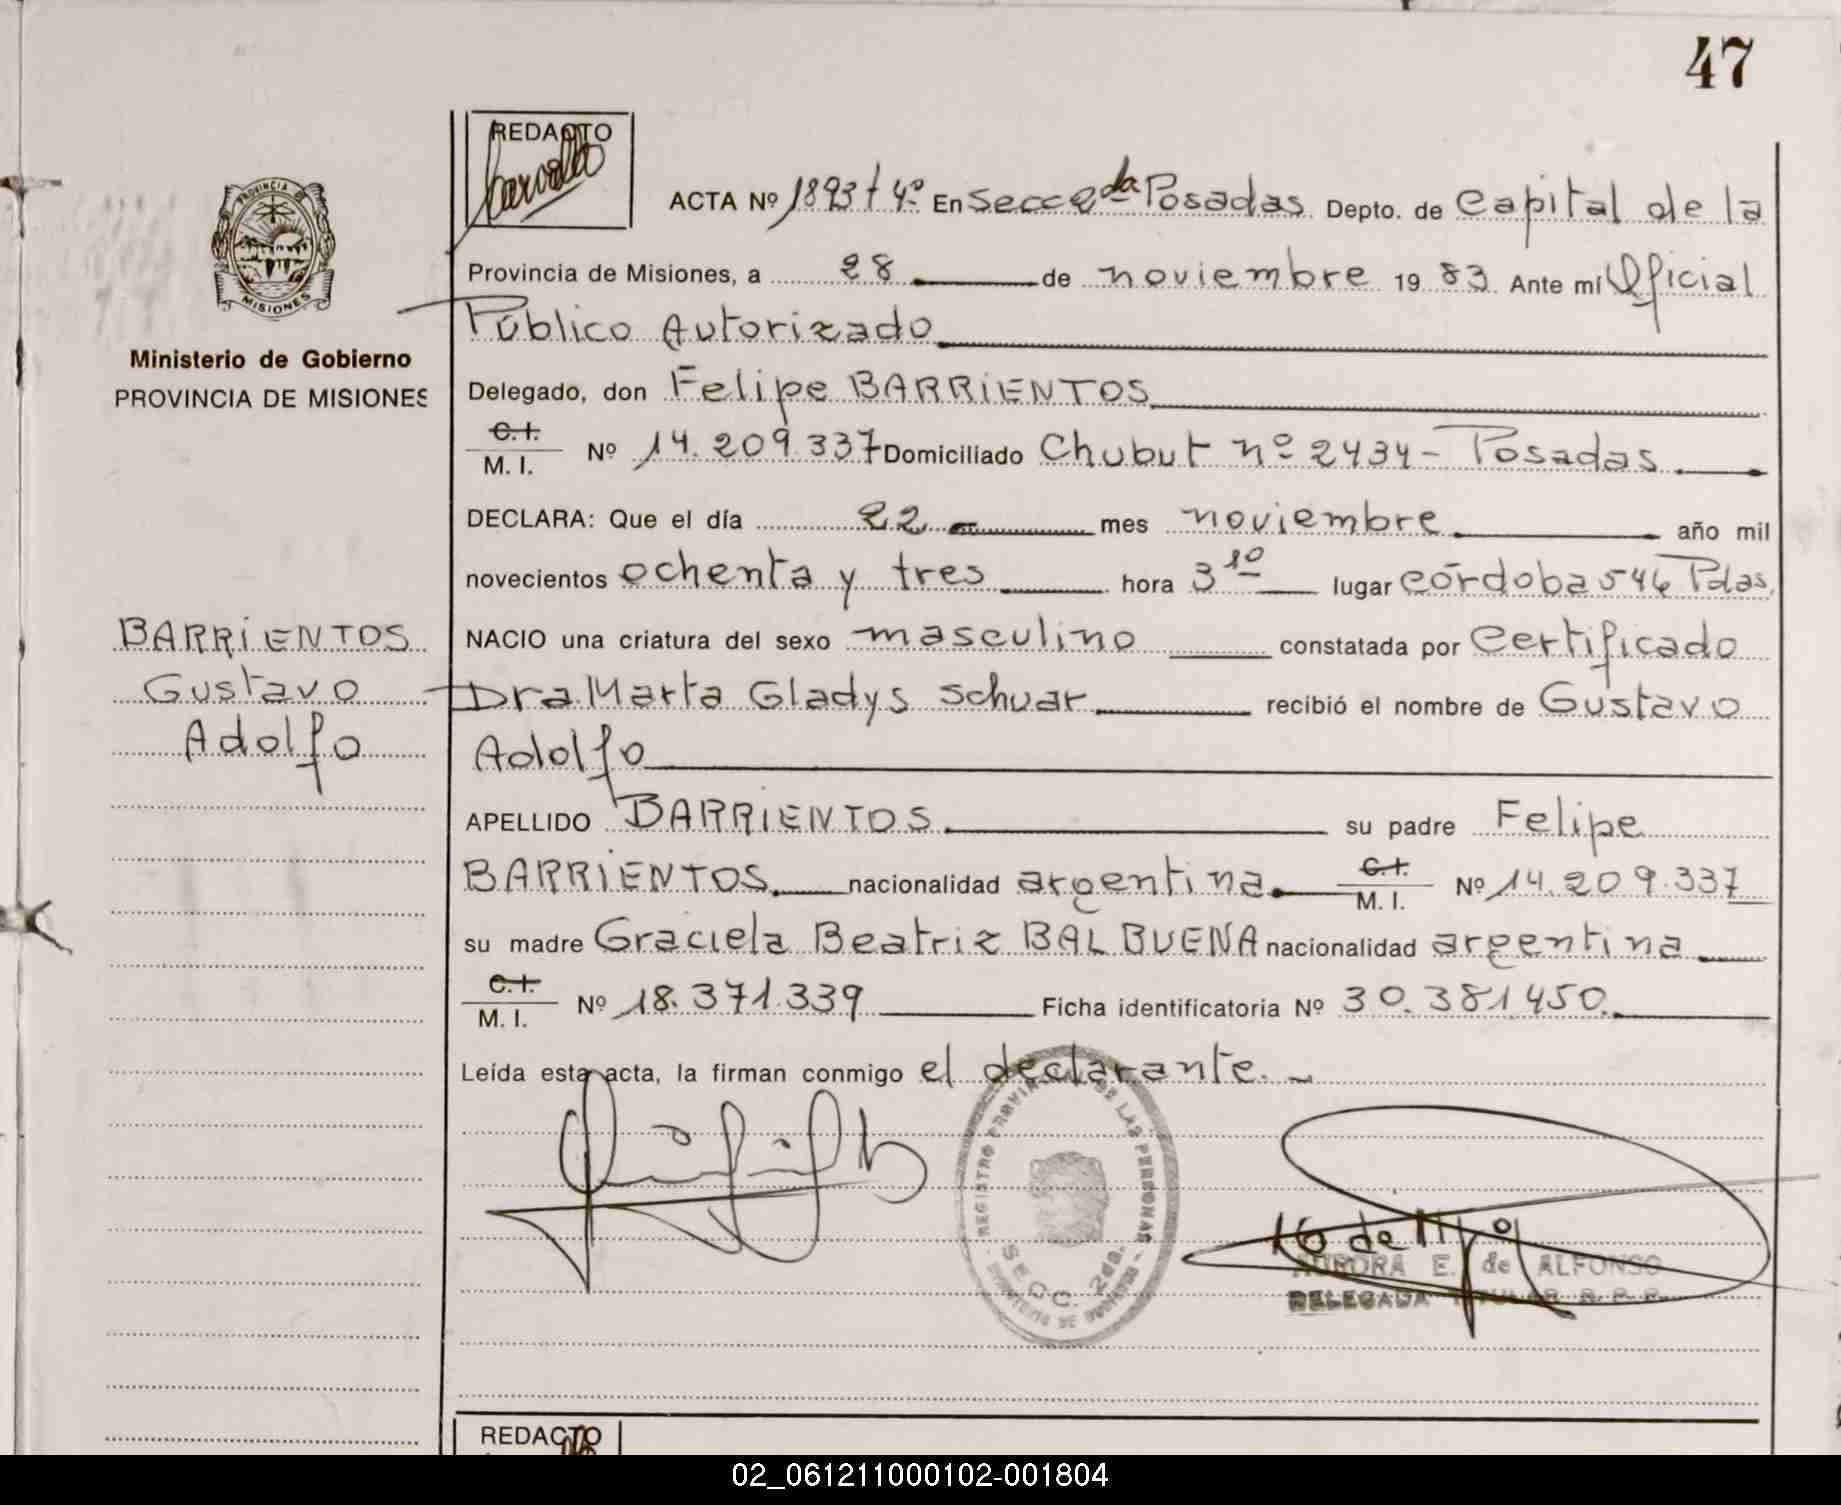 47
REDACTO
ACTA Nº 1893 t 4º En Secc 2da Posadas Depto. de Capital de la
Provincia de Misiones, a 28 de noviembre 19 83 Ante mí Oficial
Público Autorizado
Ministerio de Gobierno
PROVINCIA DE MISIONES
Delegado, don Felipe BARRIENTOS
C.I.
M. I. Nº 14.209.337 Domiciliado Chubut nº 2434 - Posadas
DECLARA: Que el día 22 mes noviembre año mil
novecientos ochenta y tres hora 3 10 lugar córdoba 546 Pdas.
BARRIENTOS
Gustavo
Adolfo
NACIO una criatura del sexo masculino constatada por Certificado
Dra. Marta Gladys Schuar recibió el nombre de Gustavo
Adolfo
APELLIDO BARRIENTOS su padre Felipe
BARRIENTOS nacionalidad argentina C.I. M. I. Nº 14.209.337
su madre Graciela Beatriz BALBUENA nacionalidad argentina
C.I.
M. I. Nº 18.371.339 Ficha identificatoria Nº 30.381.450.
Leída esta acta, la firman conmigo el declarante.
REGISTRO PROVINCIAL DE LAS PERSONAS
SECC. 2da.
AURORA E. de ALFONSO
DELEGADA TITULAR R. P. P.
REDACTO
02_061211000102-001804